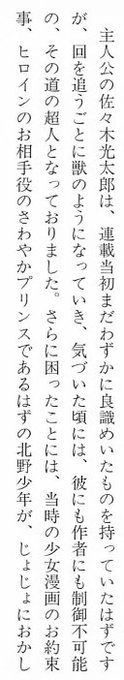 主人公の佐々木光太郎は、連載当初まだわずかに良識めいたものを持っていたはずです
が、回を追うごとに獣のようになっていき、気づいた頃には、彼にも作者にも制御不可能
の、その道の超人となっておりました。さらに困ったことには、当時の少女漫画のお約束
事、ヒロインのお相手役のさわやかプリンスであるはずの北野少年が、じょじょにおかし